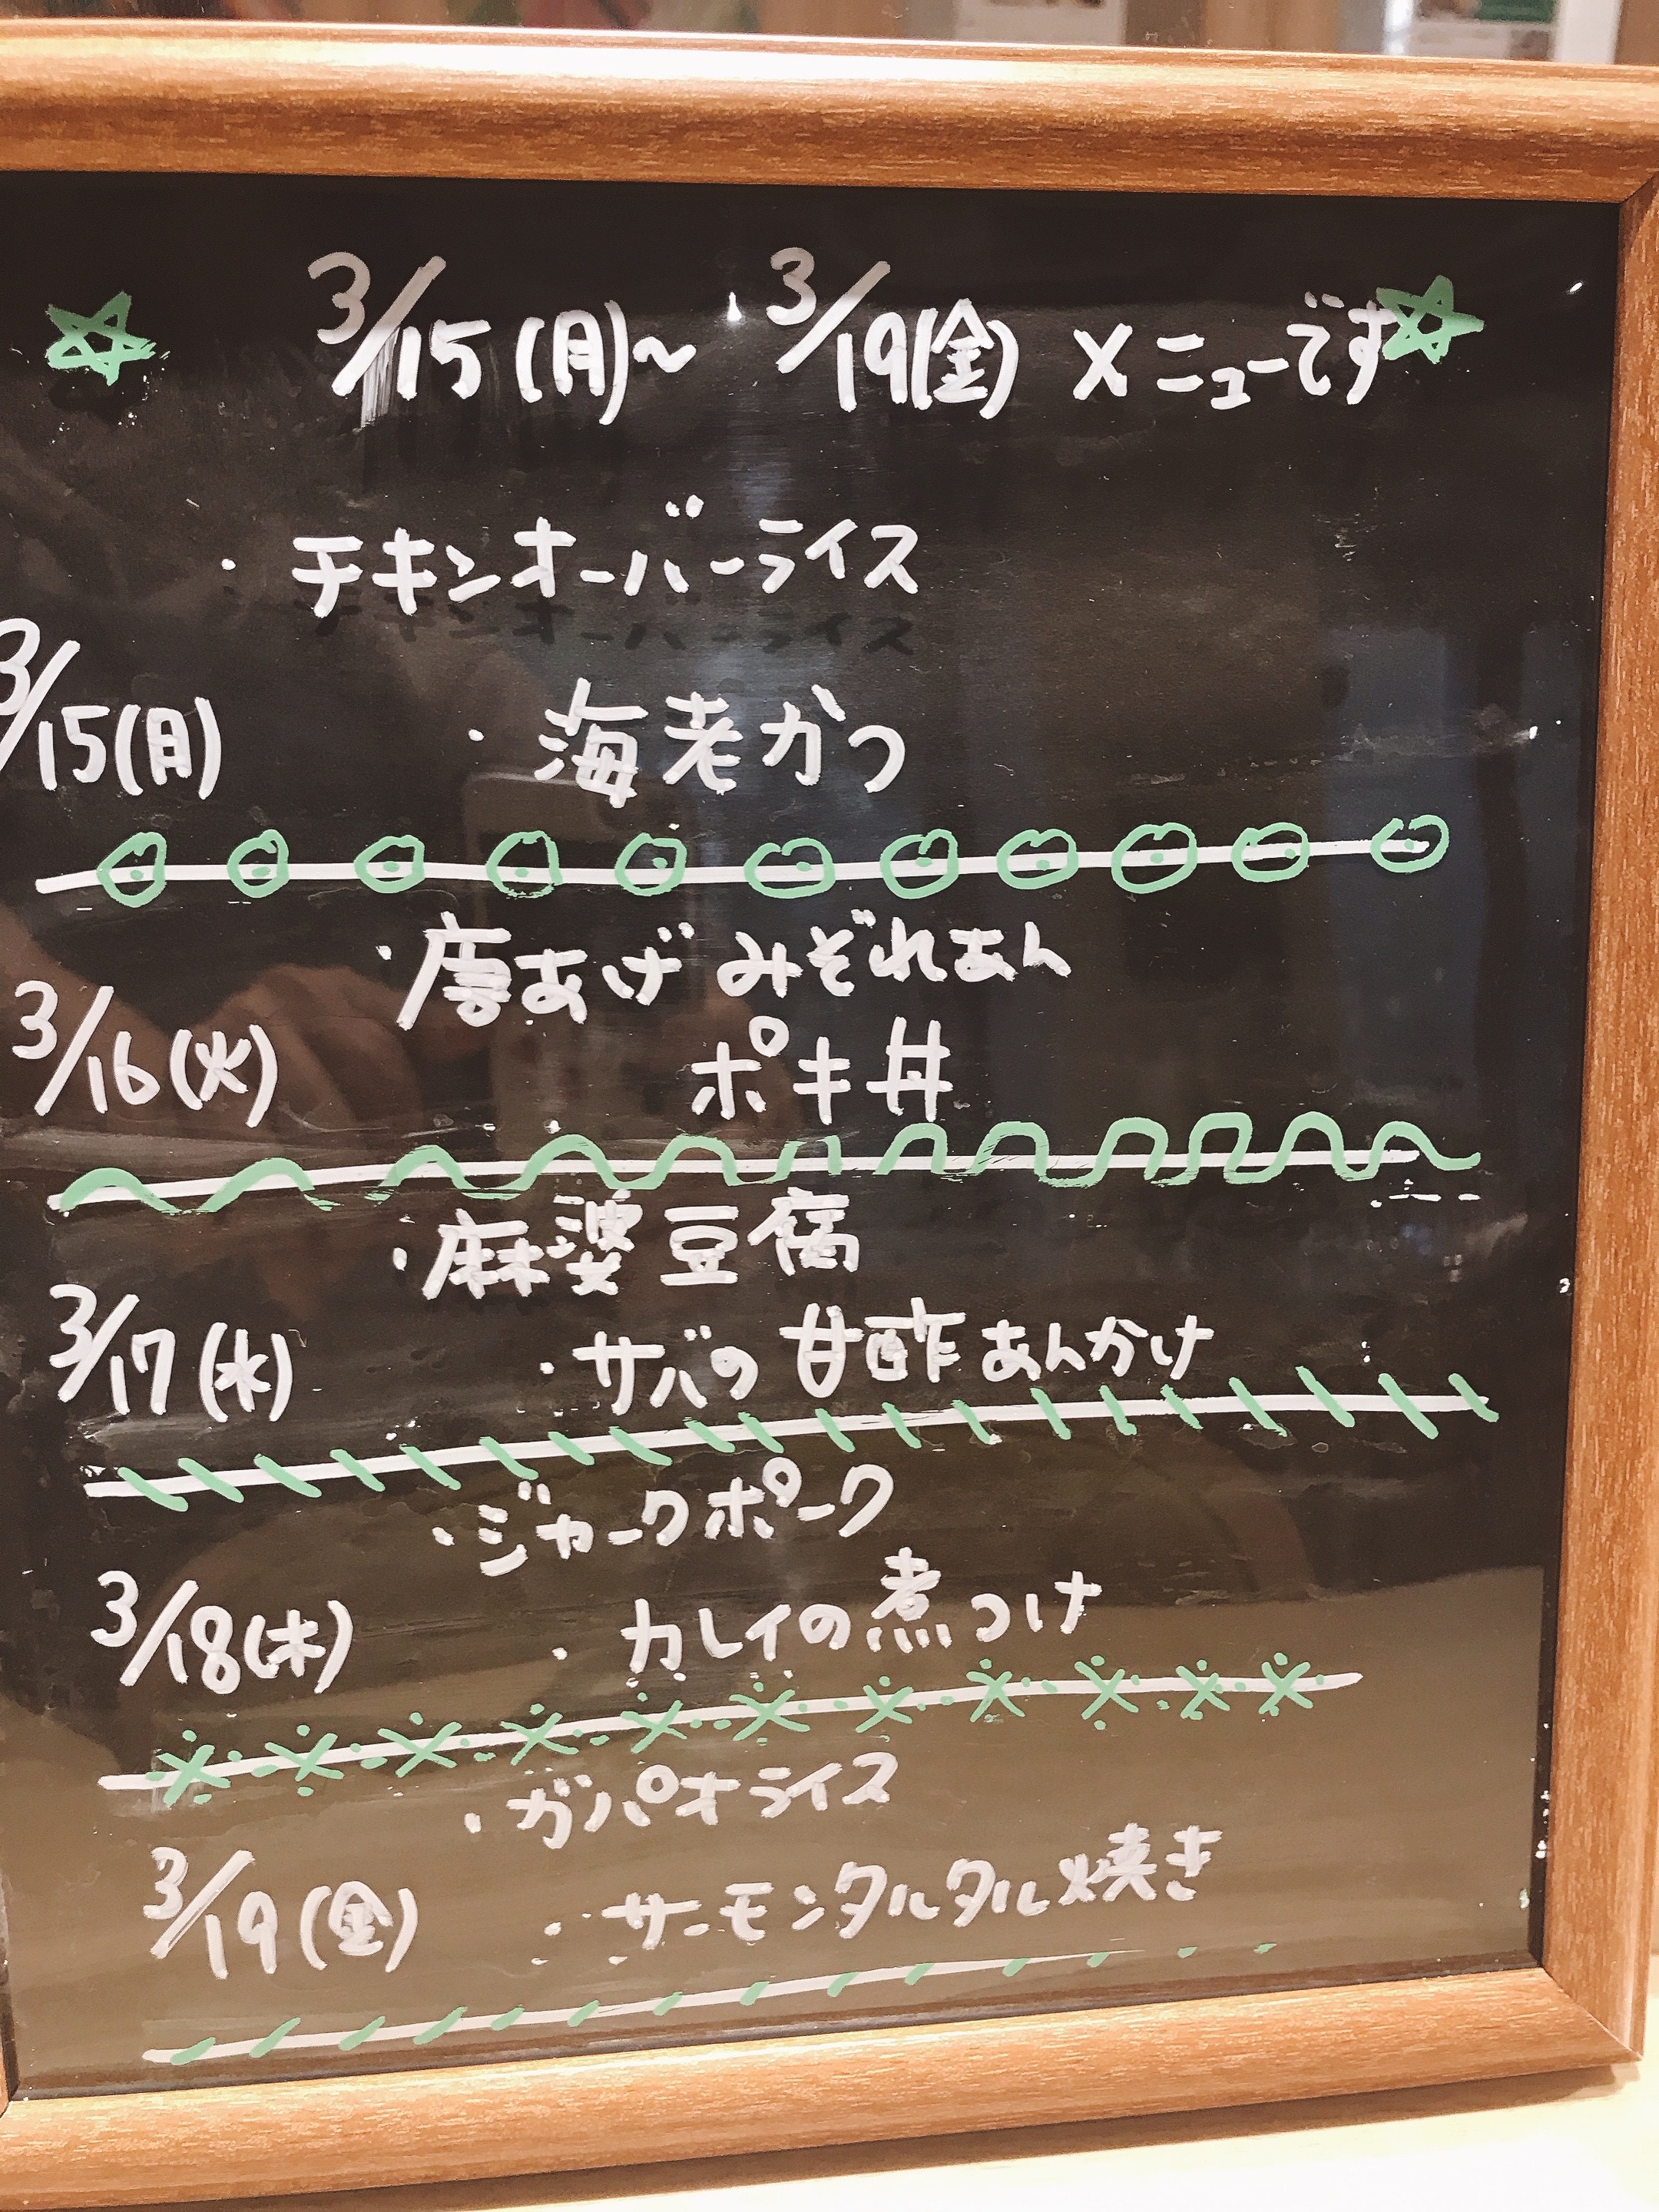 3/15(月)～3/19(金) メニューです
・チキンオーバーライス
3/15(月)
・海老かつ
・唐あげみぞれあん
3/16(火)
ポキ丼
・麻婆豆腐
3/17(水)
・サバの甘酢あんかけ
・ジャークポーク
3/18(木)
・カレイの煮つけ
・ガパオライス
3/19(金)
・サーモンタルタル焼き